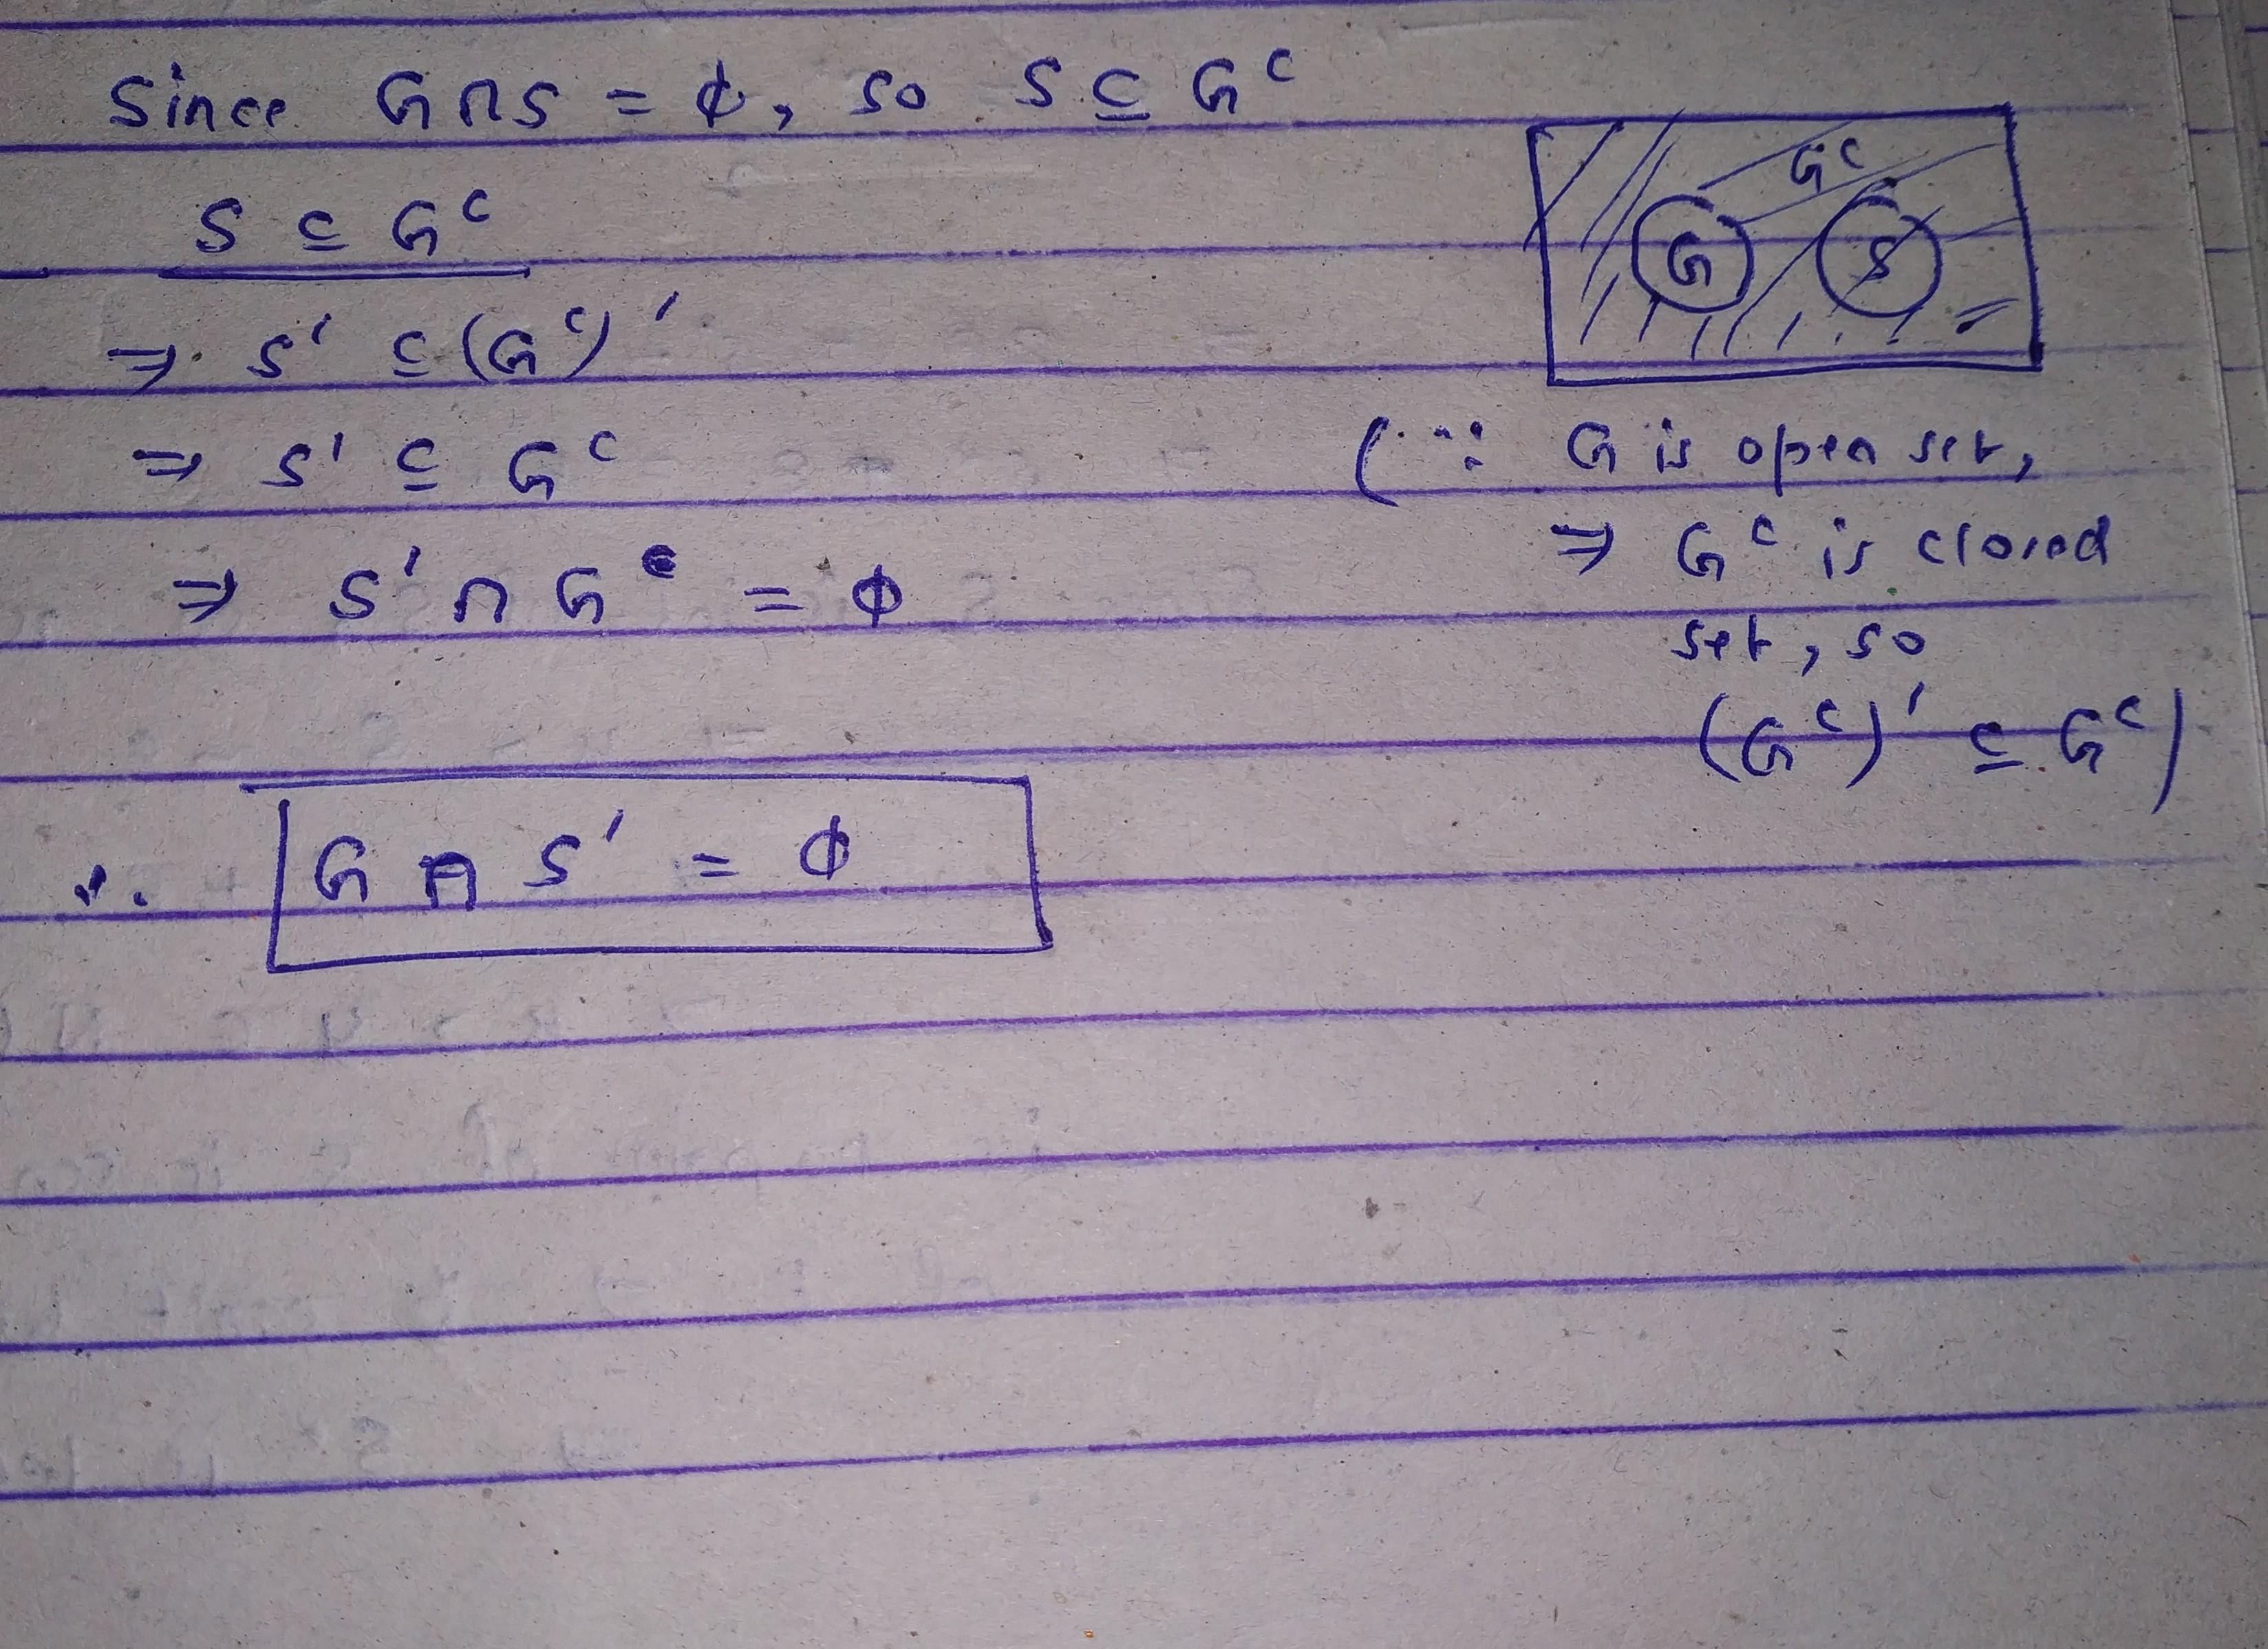 Since G∩S = ϕ, so S ⊆ Gᶜ
S ⊆ Gᶜ
Gᶜ
G S
⇒ S' ⊆ (Gᶜ)'
⇒ S' ⊆ Gᶜ (∵ G is open set,
⇒ Gᶜ is closed
⇒ S' ∩ G = ϕ
set, so
(Gᶜ)' ⊆ Gᶜ)
∴ G ∩ S' = ϕ